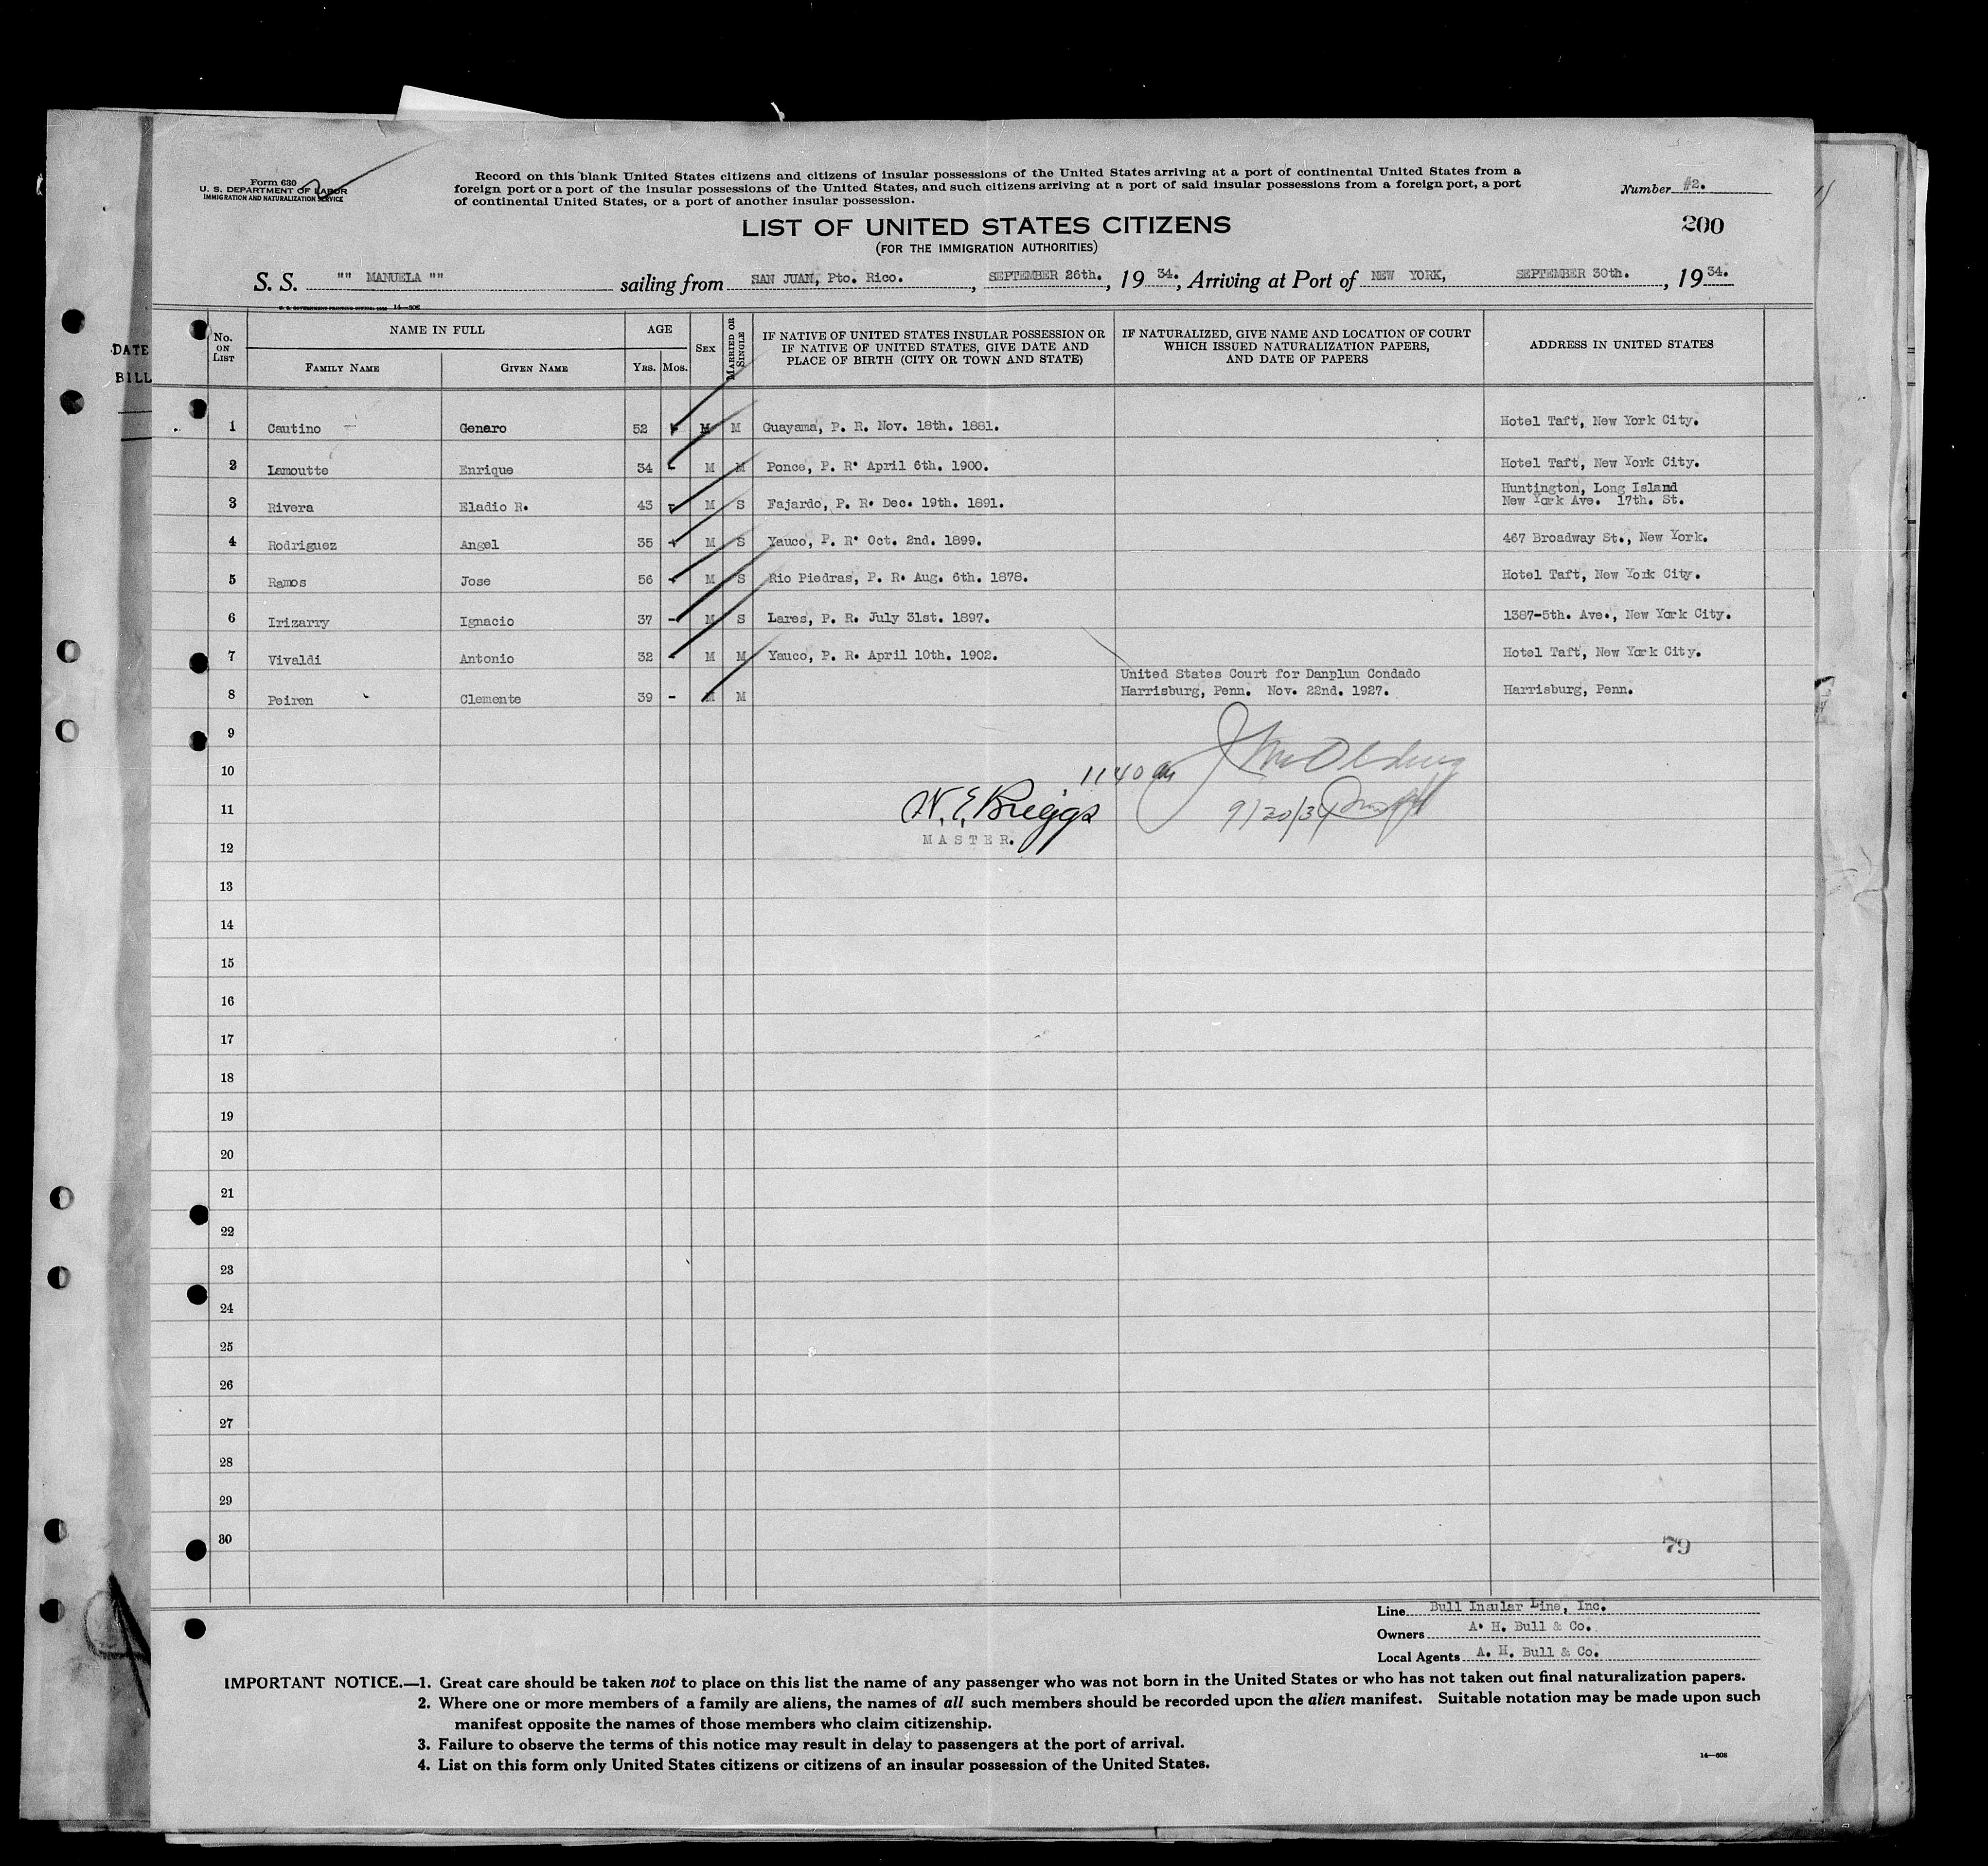 Form 630
U. S. DEPARTMENT OF LABOR
IMMIGRATION AND NATURALIZATION SERVICE
Record on this blank United States citizens and citizens of insular possessions of the United States arriving at a port of continental United States from a
foreign port or a port of the insular possessions of the United States, and such citizens arriving at a port of said insular possessions from a foreign port, a port
of continental United States, or a port of another insular possession.
Number #2.
200
LIST OF UNITED STATES CITIZENS
(FOR THE IMMIGRATION AUTHORITIES)
S. S. "" MANUELA "" sailing from SAN JUAN, Pto. Rico. , SEPTEMBER 26th. , 19 34. , Arriving at Port of NEW YORK, SEPTEMBER 30th. , 19 34.
DATE
BILL
No. ON LIST NAME IN FULL AGE SEX MARRIED OR SINGLE IF NATIVE OF UNITED STATES INSULAR POSSESSION OR IF NATIVE OF UNITED STATES, GIVE DATE AND PLACE OF BIRTH (CITY OR TOWN AND STATE) IF NATURALIZED, GIVE NAME AND LOCATION OF COURT WHICH ISSUED NATURALIZATION PAPERS, AND DATE OF PAPERS ADDRESS IN UNITED STATES
FAMILY NAME GIVEN NAME YRS. MOS.
1 Cautino Genaro 52 M M Guayama, P. R. Nov. 18th. 1881. Hotel Taft, New York City.
2 Lamoutte Enrique 34 - M M Ponce, P. R. April 6th. 1900. Hotel Taft, New York City.
3 Rivera Eladio R. 43 - M S Fajardo, P. R. Dec. 19th. 1891. Huntington, Long Island
New York Ave. 17th. St.
4 Rodriguez Angel 35 - M S Yauco, P. R. Oct. 2nd. 1899. 467 Broadway St., New York.
5 Ramos Jose 56 - M S Rio Piedras, P. R. Aug. 6th. 1878. Hotel Taft, New York City.
6 Irizarry Ignacio 37 - M S Lares, P. R. July 31st. 1897. 1387-5th. Ave., New York City.
7 Vivaldi Antonio 32 - M M Yauco, P. R. April 10th. 1902. Hotel Taft, New York City.
United States Court for Danplun Condado
8 Peiren Clemente 39 - M M Harrisburg, Penn. Nov. 22nd. 1927. Harrisburg, Penn.
9
10
1140 am
11
W. E. Briggs
9/20/34
MASTER.
12
13
14
15
16
17
18
19
20
21
22
23
24
25
26
27
28
29
30
79
Line Bull Insular Line, Inc.
Owners A. H. Bull & Co.
Local Agents A. H. Bull & Co.
IMPORTANT NOTICE.—1. Great care should be taken not to place on this list the name of any passenger who was not born in the United States or who has not taken out final naturalization papers.
2. Where one or more members of a family are aliens, the names of all such members should be recorded upon the alien manifest. Suitable notation may be made upon such
manifest opposite the names of those members who claim citizenship.
3. Failure to observe the terms of this notice may result in delay to passengers at the port of arrival.
4. List on this form only United States citizens or citizens of an insular possession of the United States.
14—608